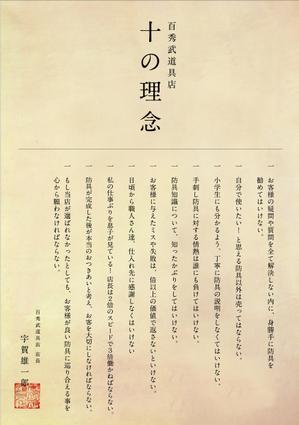 百秀武道具店
十の理念
一 お客様の疑問や質問を全て解決しない内に、身勝手に防具を
勧めてはいけない。
一 自分で使いたい！と思える防具以外は売ってはならない。
一 小学生にも分かるよう、丁寧に防具の説明をしなくてはいけない。
一 手刺し防具に対する情熱は誰にも負けてはいけない。
一 防具知識について、知ったかぶりをしてはいけない。
一 お客様に与えたミスや失敗は、倍以上の価値で返さないといけない。
一 日頃から職人さん達、仕入れ先に感謝しなくてはいけない
一 私の仕事ぶりを息子が見ている！店長は２倍のスピードで３倍働かねばならない。
一 防具が完成した後が本当のおつきあいと考え、お客を大切にしなければならない。
一 もし当店が選ばれなかったとしても、お客様が良い防具に巡り合える事を
心から願わなければならない。
百秀武道具店 店長
宇賀雄一郎